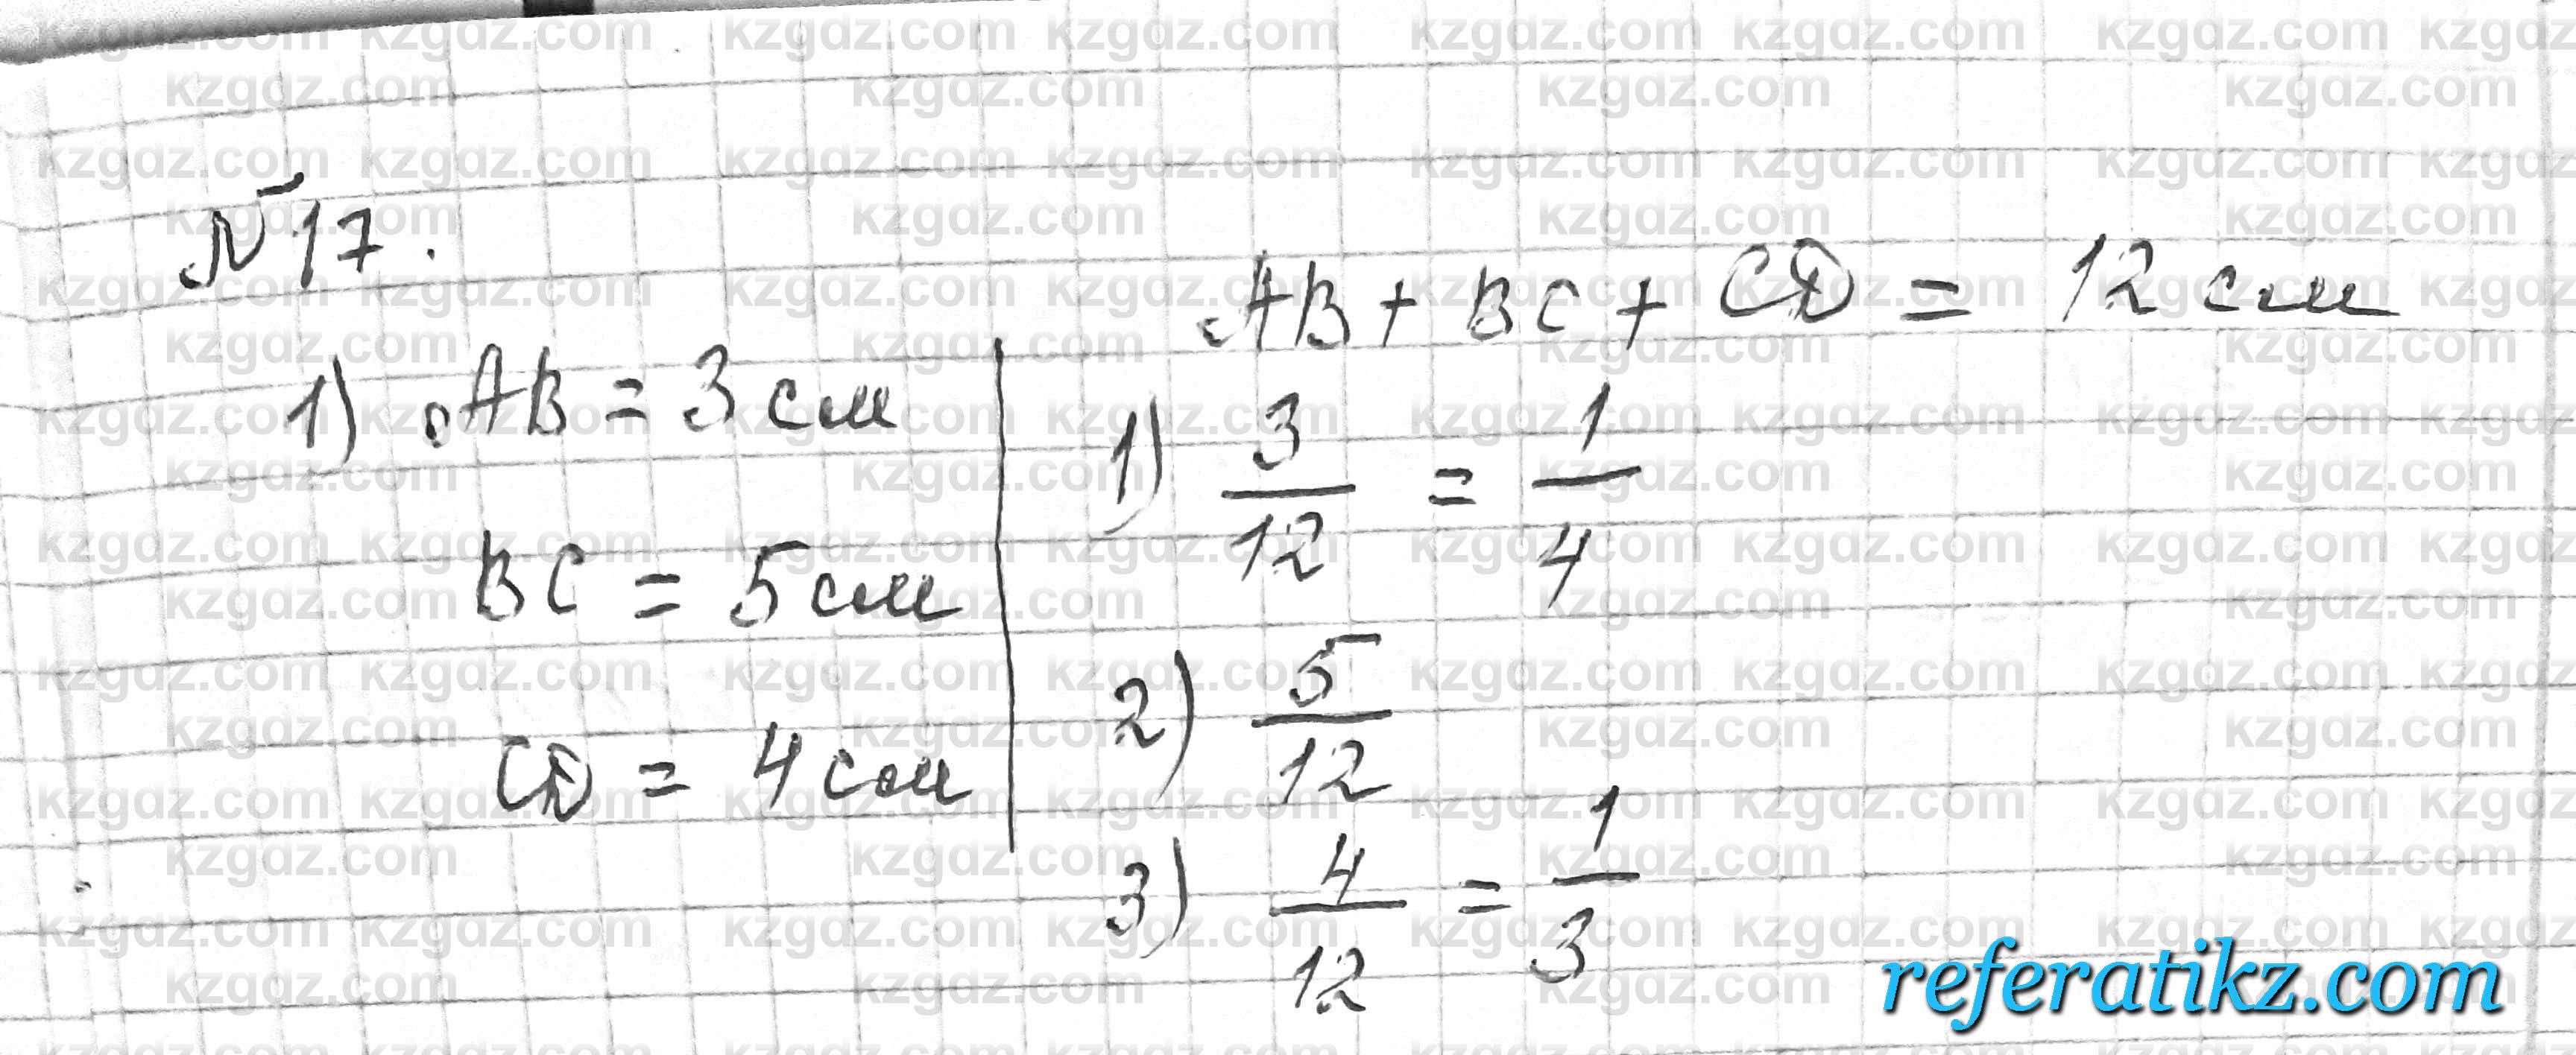 №17.
1) AB = 3 см
BC = 5 см
CD = 4 см
AB + BC + CD = 12 см
1) 3/12 = 1/4
2) 5/12
3) 4/12 = 1/3
referatikz.com
kzgdz.com